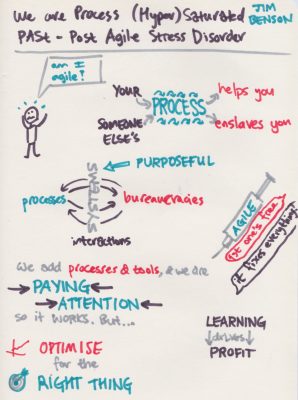 We are Process (Hyper) Saturated
JIM BENSON
PASt - Post Agile Stress Disorder
am I agile?
YOUR PROCESS helps you
SOMEONE ELSE'S enslaves you
PURPOSEFUL
SYSTEMS
processes
bureaucracies
interactions
AGILE
1st one's free
it fixes everything!
We add processes & tools, & we are
PAYING
ATTENTION
so it WORKS. But...
LEARNING
drives
PROFIT
OPTIMISE
for the
RIGHT THING